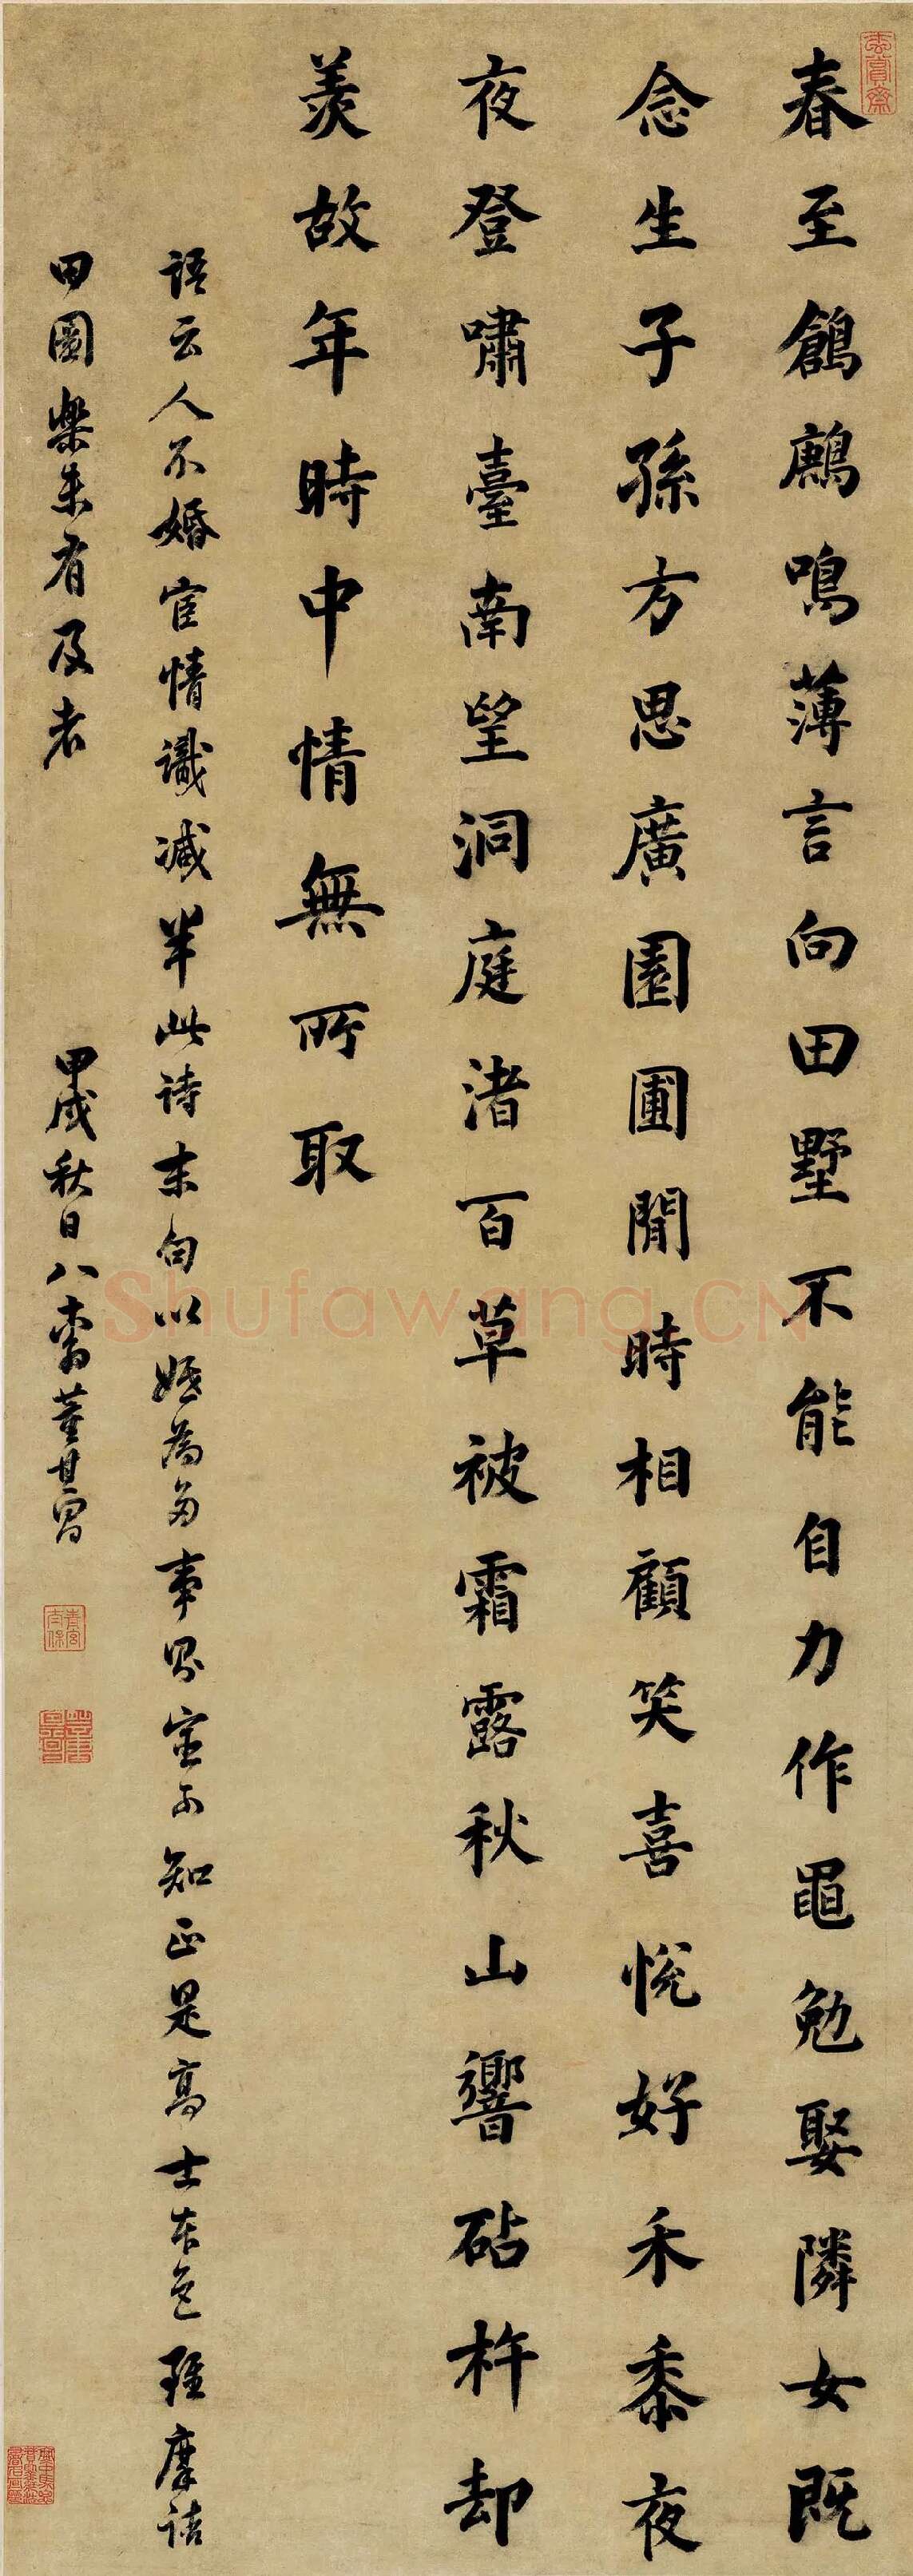 春至鶬鶊鳴薄言向田墅不能自力作黽勉娶隣女既
念生子孫方思廣園圃閒時相顧笑喜悅好禾黍夜
夜登嘯臺南望洞庭渚百草被霜露秋山響砧杵却
羨故年時中情無所取
語云人不婚宦情識減半此詩末句以婚為多事則宦可知正是高士本色雖摩詰
田園樂未有及者
甲戌秋日八十翁董其昌
玄賞齋
青宮太保
董其昌印
Shufawang.CN